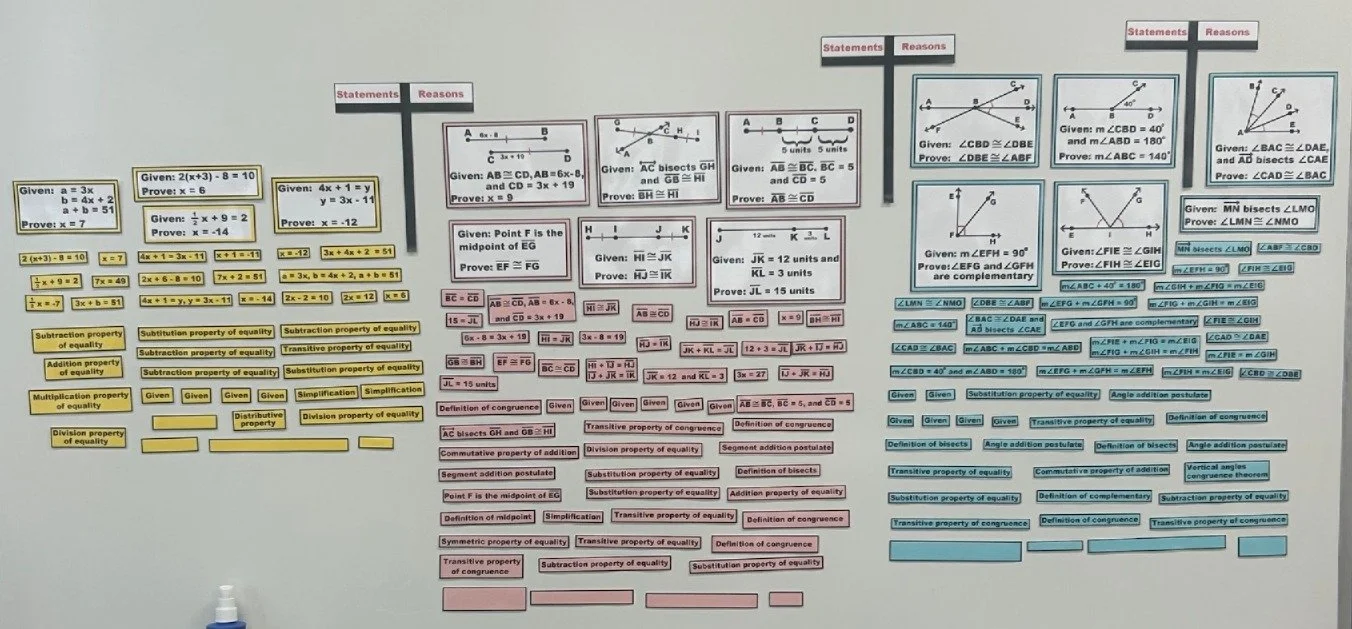 Statements Reasons
Statements Reasons
Statements Reasons
Given: a = 3x
b = 4x + 2
a + b = 51
Prove: x = 7
Given: 2(x+3) - 8 = 10
Prove: x = 6
Given: 1/2 x + 9 = 2
Prove: x = -14
Given: 4x + 1 = y
y = 3x - 11
Prove: x = -12
2 (x+3) - 8 = 10
x = 7
4x + 1 = 3x - 11
x + 1 = -11
x = -12
3x + 4x + 2 = 51
1/2 x + 9 = 2
7x = 49
2x + 6 - 8 = 10
7x + 2 = 51
a = 3x, b = 4x + 2, a + b = 51
1/2 x = -7
3x + b = 51
4x + 1 = y, y = 3x - 11
x = -14
2x - 2 = 10
2x = 12
x = 6
Subtraction property
of equality
Subtitution property of equality
Subtraction property of equality
Subtraction property of equality
Transitive property of equality
Addition property
of equality
Subtraction property of equality
Substitution property of equality
Multiplication property
of equality
Given
Given
Given
Given
Simplification
Simplification
Distributive
property
Division property of equality
Division property
of equality
A 6x - 8 B
C 3x + 19 D
Given: AB ≅ CD, AB=6x-8,
and CD = 3x + 19
Prove: x = 9
G C H I
A B
Given: AC bisects GH
and GB ≅ HI
Prove: BH ≅ HI
A B C D
5 units 5 units
Given: AB ≅ BC, BC = 5
and CD = 5
Prove: AB ≅ CD
Given: Point F is the
midpoint of EG
Prove: EF ≅ FG
H I J K
Given: HI ≅ JK
Prove: HJ ≅ IK
J 12 units K 3 units L
Given: JK = 12 units and
KL = 3 units
Prove: JL = 15 units
BC = CD
AB ≅ CD, AB = 6x - 8,
and CD = 3x + 19
HI ≅ JK
AB ≅ CD
HJ ≅ IK
AB = CD
x = 9
BH ≅ HI
15 = JL
6x - 8 = 3x + 19
HI = JK
3x - 8 = 19
HJ = IK
JK + KL = JL
12 + 3 = JL
JK + IJ = HJ
GB ≅ BH
EF ≅ FG
BC ≅ CD
HI + IJ = HJ
IJ + JK = IK
JK = 12 and KL = 3
3x = 27
IJ + JK = HJ
JL = 15 units
Definition of congruence
Given
Given
Given
Given
Given
Given
AB ≅ BC, BC = 5, and CD = 5
AC bisects GH and GB ≅ HI
Transitive property of congruence
Definition of congruence
Commutative property of addition
Division property of equality
Segment addition postulate
Segment addition postulate
Substitution property of equality
Definition of bisects
Point F is the midpoint of EG
Substitution property of equality
Addition property of equality
Definition of midpoint
Simplification
Transitive property of equality
Definition of congruence
Symmetric property of equality
Transitive property of equality
Definition of congruence
Transitive property
of congruence
Subtraction property of equality
Substitution property of equality
A B C D
F E
Given: ∠CBD ≅ ∠DBE
Prove: ∠DBE ≅ ∠ABF
C
A B 40° D
Given: m∠CBD = 40°
and m∠ABD = 180°
Prove: m∠ABC = 140°
B C
D
A E
Given: ∠BAC ≅ ∠DAE,
and AD bisects ∠CAE
Prove: ∠CAD ≅ ∠BAC
E G
F H
Given: m∠EFH = 90°
Prove: ∠EFG and ∠GFH
are complementary
F G
E I H
Given: ∠FIE ≅ ∠GIH
Prove: ∠FIH ≅ ∠EIG
Given: MN bisects ∠LMO
Prove: ∠LMN ≅ ∠NMO
MN bisects ∠LMO
∠ABF ≅ ∠CBD
m∠EFH = 90°
∠FIH ≅ ∠EIG
m∠ABC + 40° = 180°
m∠GIH + m∠FIG = m∠EIG
∠LMN ≅ ∠NMO
∠DBE ≅ ∠ABF
m∠EFG + m∠GFH = 90°
m∠FIG + m∠GIH = m∠EIG
m∠ABC = 140°
∠BAC ≅ ∠DAE and
AD bisects ∠CAE
∠EFG and ∠GFH are complementary
∠FIE ≅ ∠GIH
∠CAD ≅ ∠BAC
m∠ABC + m∠CBD = m∠ABD
m∠FIE + m∠FIG = m∠EIG
m∠FIG + m∠GIH = m∠FIH
∠CAD ≅ ∠DAE
m∠FIE = m∠GIH
m∠CBD = 40° and m∠ABD = 180°
m∠EFG + m∠GFH = m∠EFH
m∠FIH = m∠EIG
∠CBD ≅ ∠DBE
Given
Given
Substitution property of equality
Angle addition postulate
Given
Given
Given
Given
Transitive property of equality
Definition of congruence
Definition of bisects
Angle addition postulate
Definition of bisects
Angle addition postulate
Transitive property of equality
Commutative property of addition
Vertical angles
congruence theorem
Substitution property of equality
Definition of complementary
Subtraction property of equality
Transitive property of congruence
Definition of congruence
Transitive property of congruence